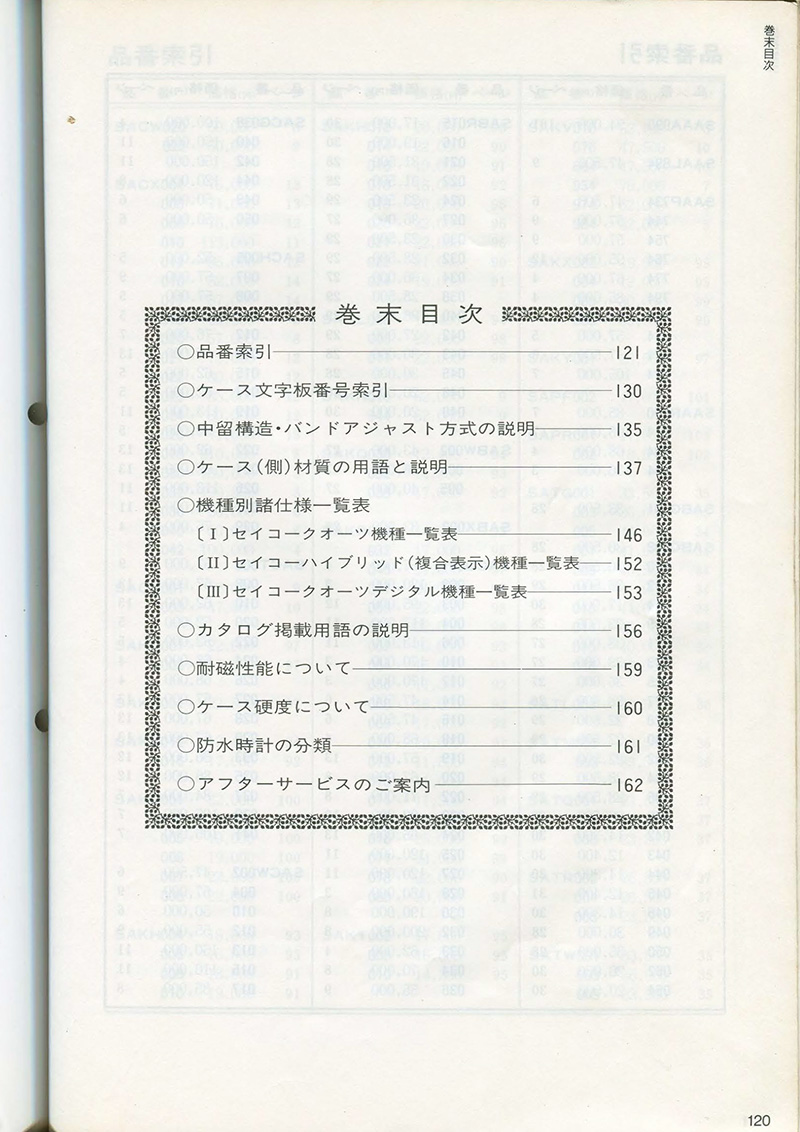 巻末目次
巻末目次
○品番索引 121
○ケース文字板番号索引 130
○中留構造・バンドアジャスト方式の説明 135
○ケース(側)材質の用語と説明 137
○機種別諸仕様一覧表
〔Ⅰ〕セイコークオーツ機種一覧表 146
〔Ⅱ〕セイコーハイブリッド(複合表示)機種一覧表 152
〔Ⅲ〕セイコークオーツデジタル機種一覧表 153
○カタログ掲載用語の説明 156
○耐磁性能について 159
○ケース硬度について 160
○防水時計の分類 161
○アフターサービスのご案内 162
120